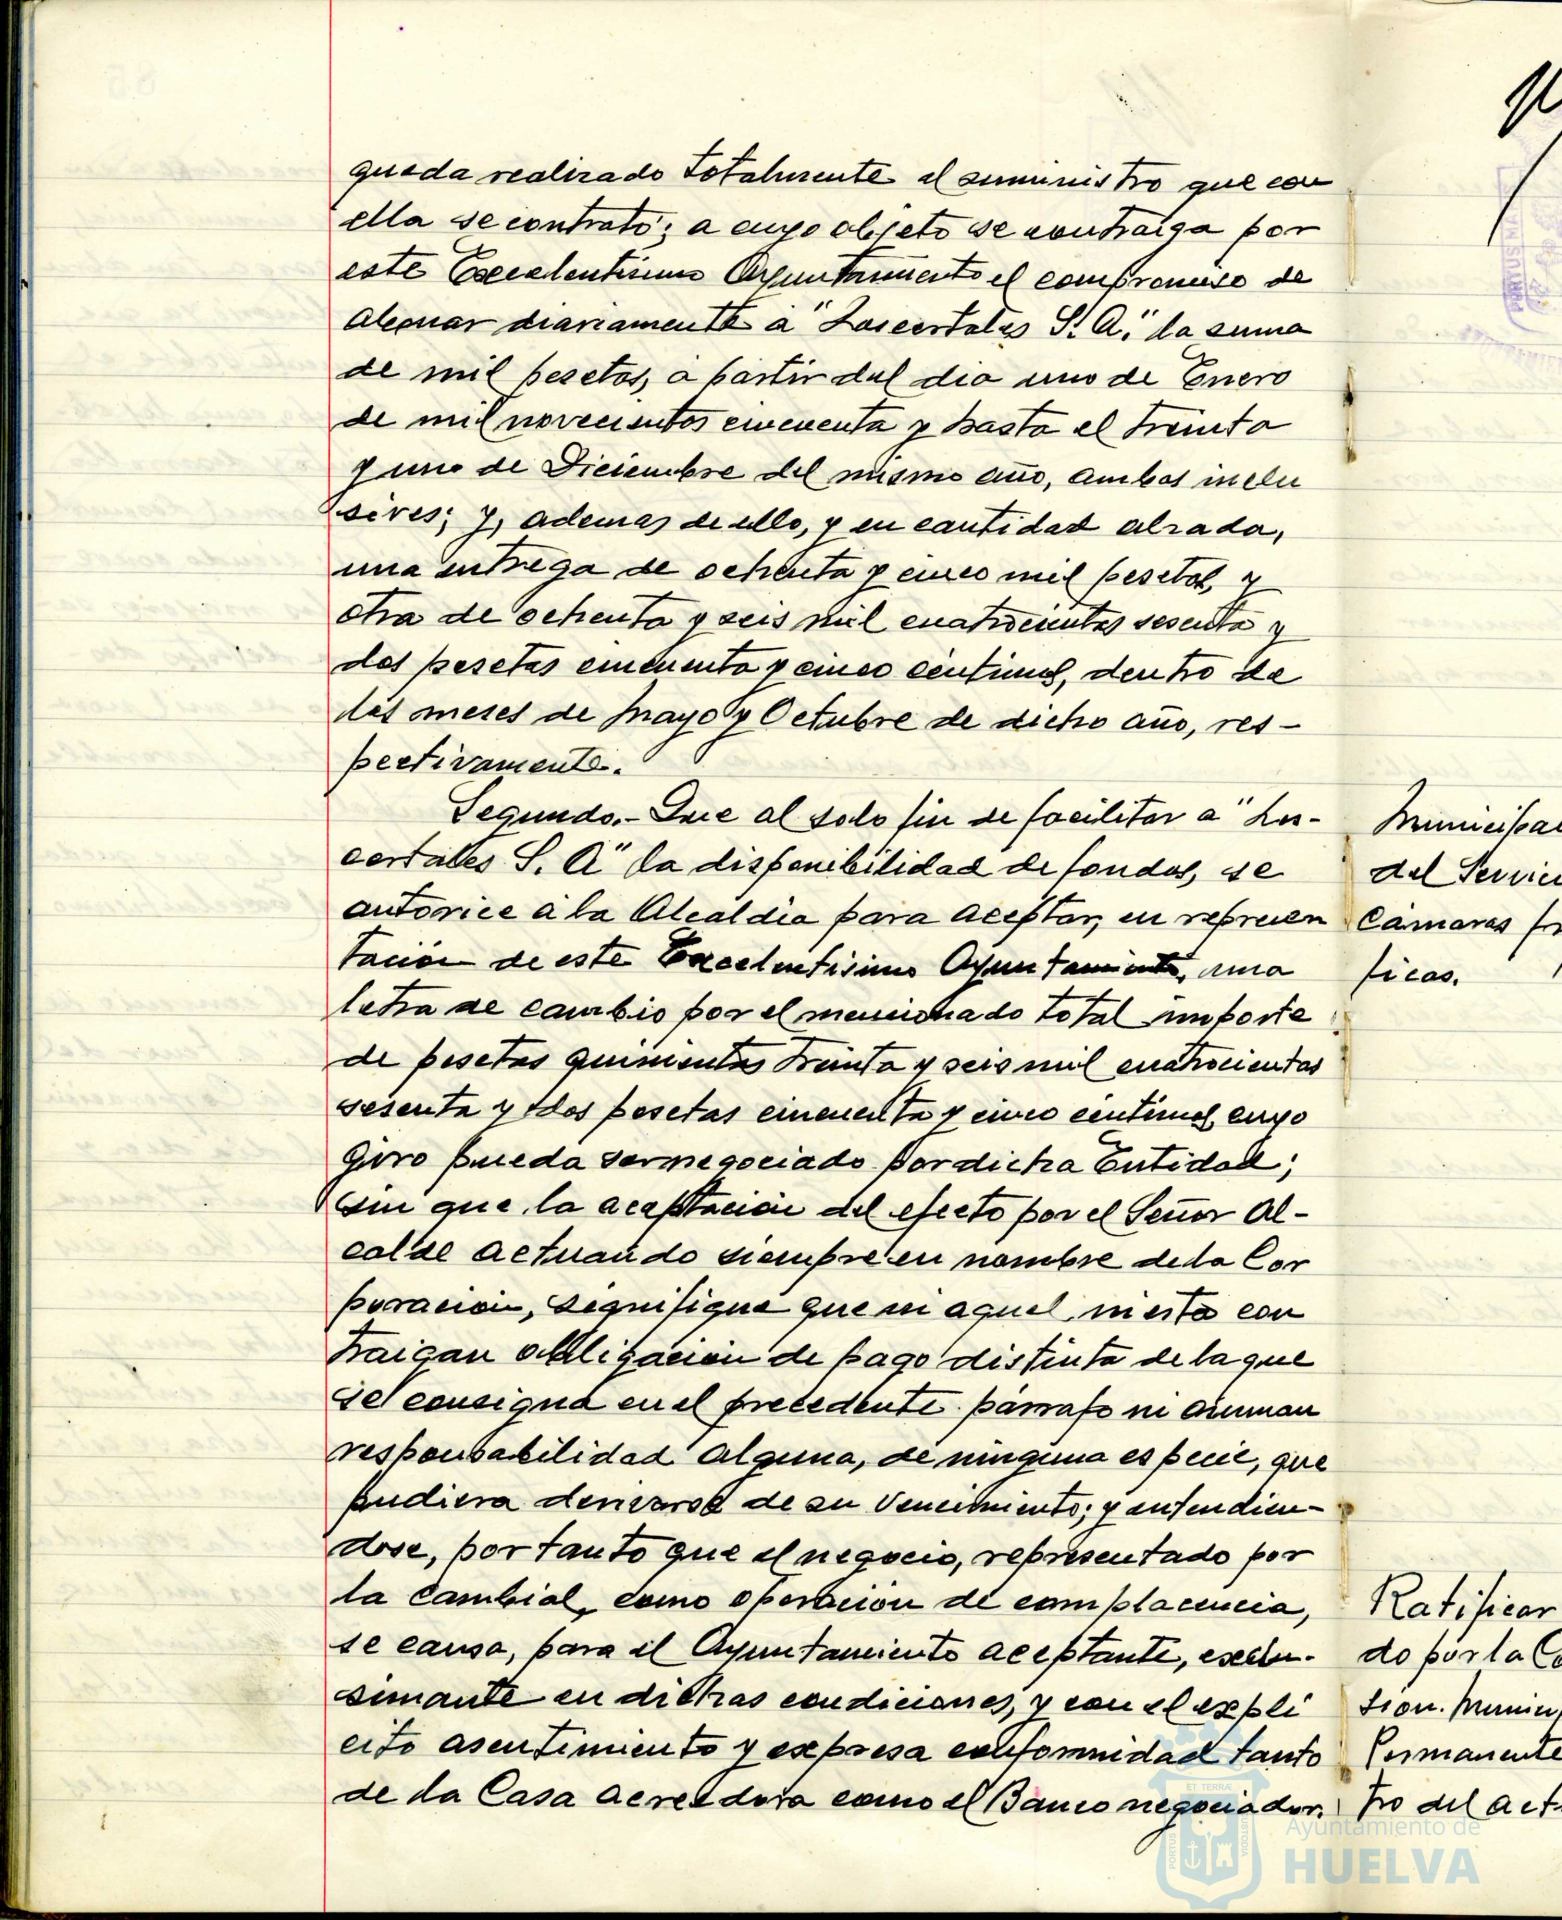 queda realizado totalmente el suministro que con
ella se contrató; a cuyo objeto se contraiga por
este Excelentísimo Ayuntamiento el compromiso de
abonar diariamente a "Loscertales S. A." la suma
de mil pesetas, a partir del dia uno de Enero
de mil novecientos cincuenta y hasta el treinta
y uno de Diciembre del mismo año, ambos inclu
sives; y, ademas de ello, y en cantidad alzada,
una entrega de ochenta y cinco mil pesetas, y
otra de ochenta y seis mil cuatrocientas sesenta y
dos pesetas cincuenta y cinco céntimos, dentro de
los meses de Mayo y Octubre de dicho año, res-
pectivamente.
Segundo.- Que al solo fin de facilitar a "Los-
certales S. A" la disponibilidad de fondos, se
autorice a la Alcaldia para aceptar, en represen
tación de este Excelentisimo Ayuntamiento, una
letra de cambio por el mencionado total importe
de pesetas quinientas treinta y seis mil cuatrocientas
sesenta y dos pesetas cincuenta y cinco céntimos, cuyo
giro pueda ser negociado por dicha Entidad;
sin que la aceptación del efecto por el Señor Al-
calde actuando siempre en nombre de la Cor
poración, signifique que ni aquel, ni esta con
traigan obligación de pago distinta de la que
se consigna en el precedente párrafo ni asuman
responsabilidad alguna, de ninguna especie, que
pudiera derivarse de su vencimiento; y entendien-
dose, por tanto que el negocio, representado por
la cambial, como operación de complacencia,
se causa, para el Ayuntamiento aceptante, exclu-
simante en dichas condiciones, y con el explí
cito asentimiento y expresa conformidad tanto
de la Casa acreedora como el Banco negociador.
Municipal
del Servici
Cámaras fr
ficas.
Ratificar
do por la Co
sion. Munici
Permanente
tro del act
PORTUS MARIS
ET TERRÆ
CUSTODIA
Ayuntamiento de
HUELVA